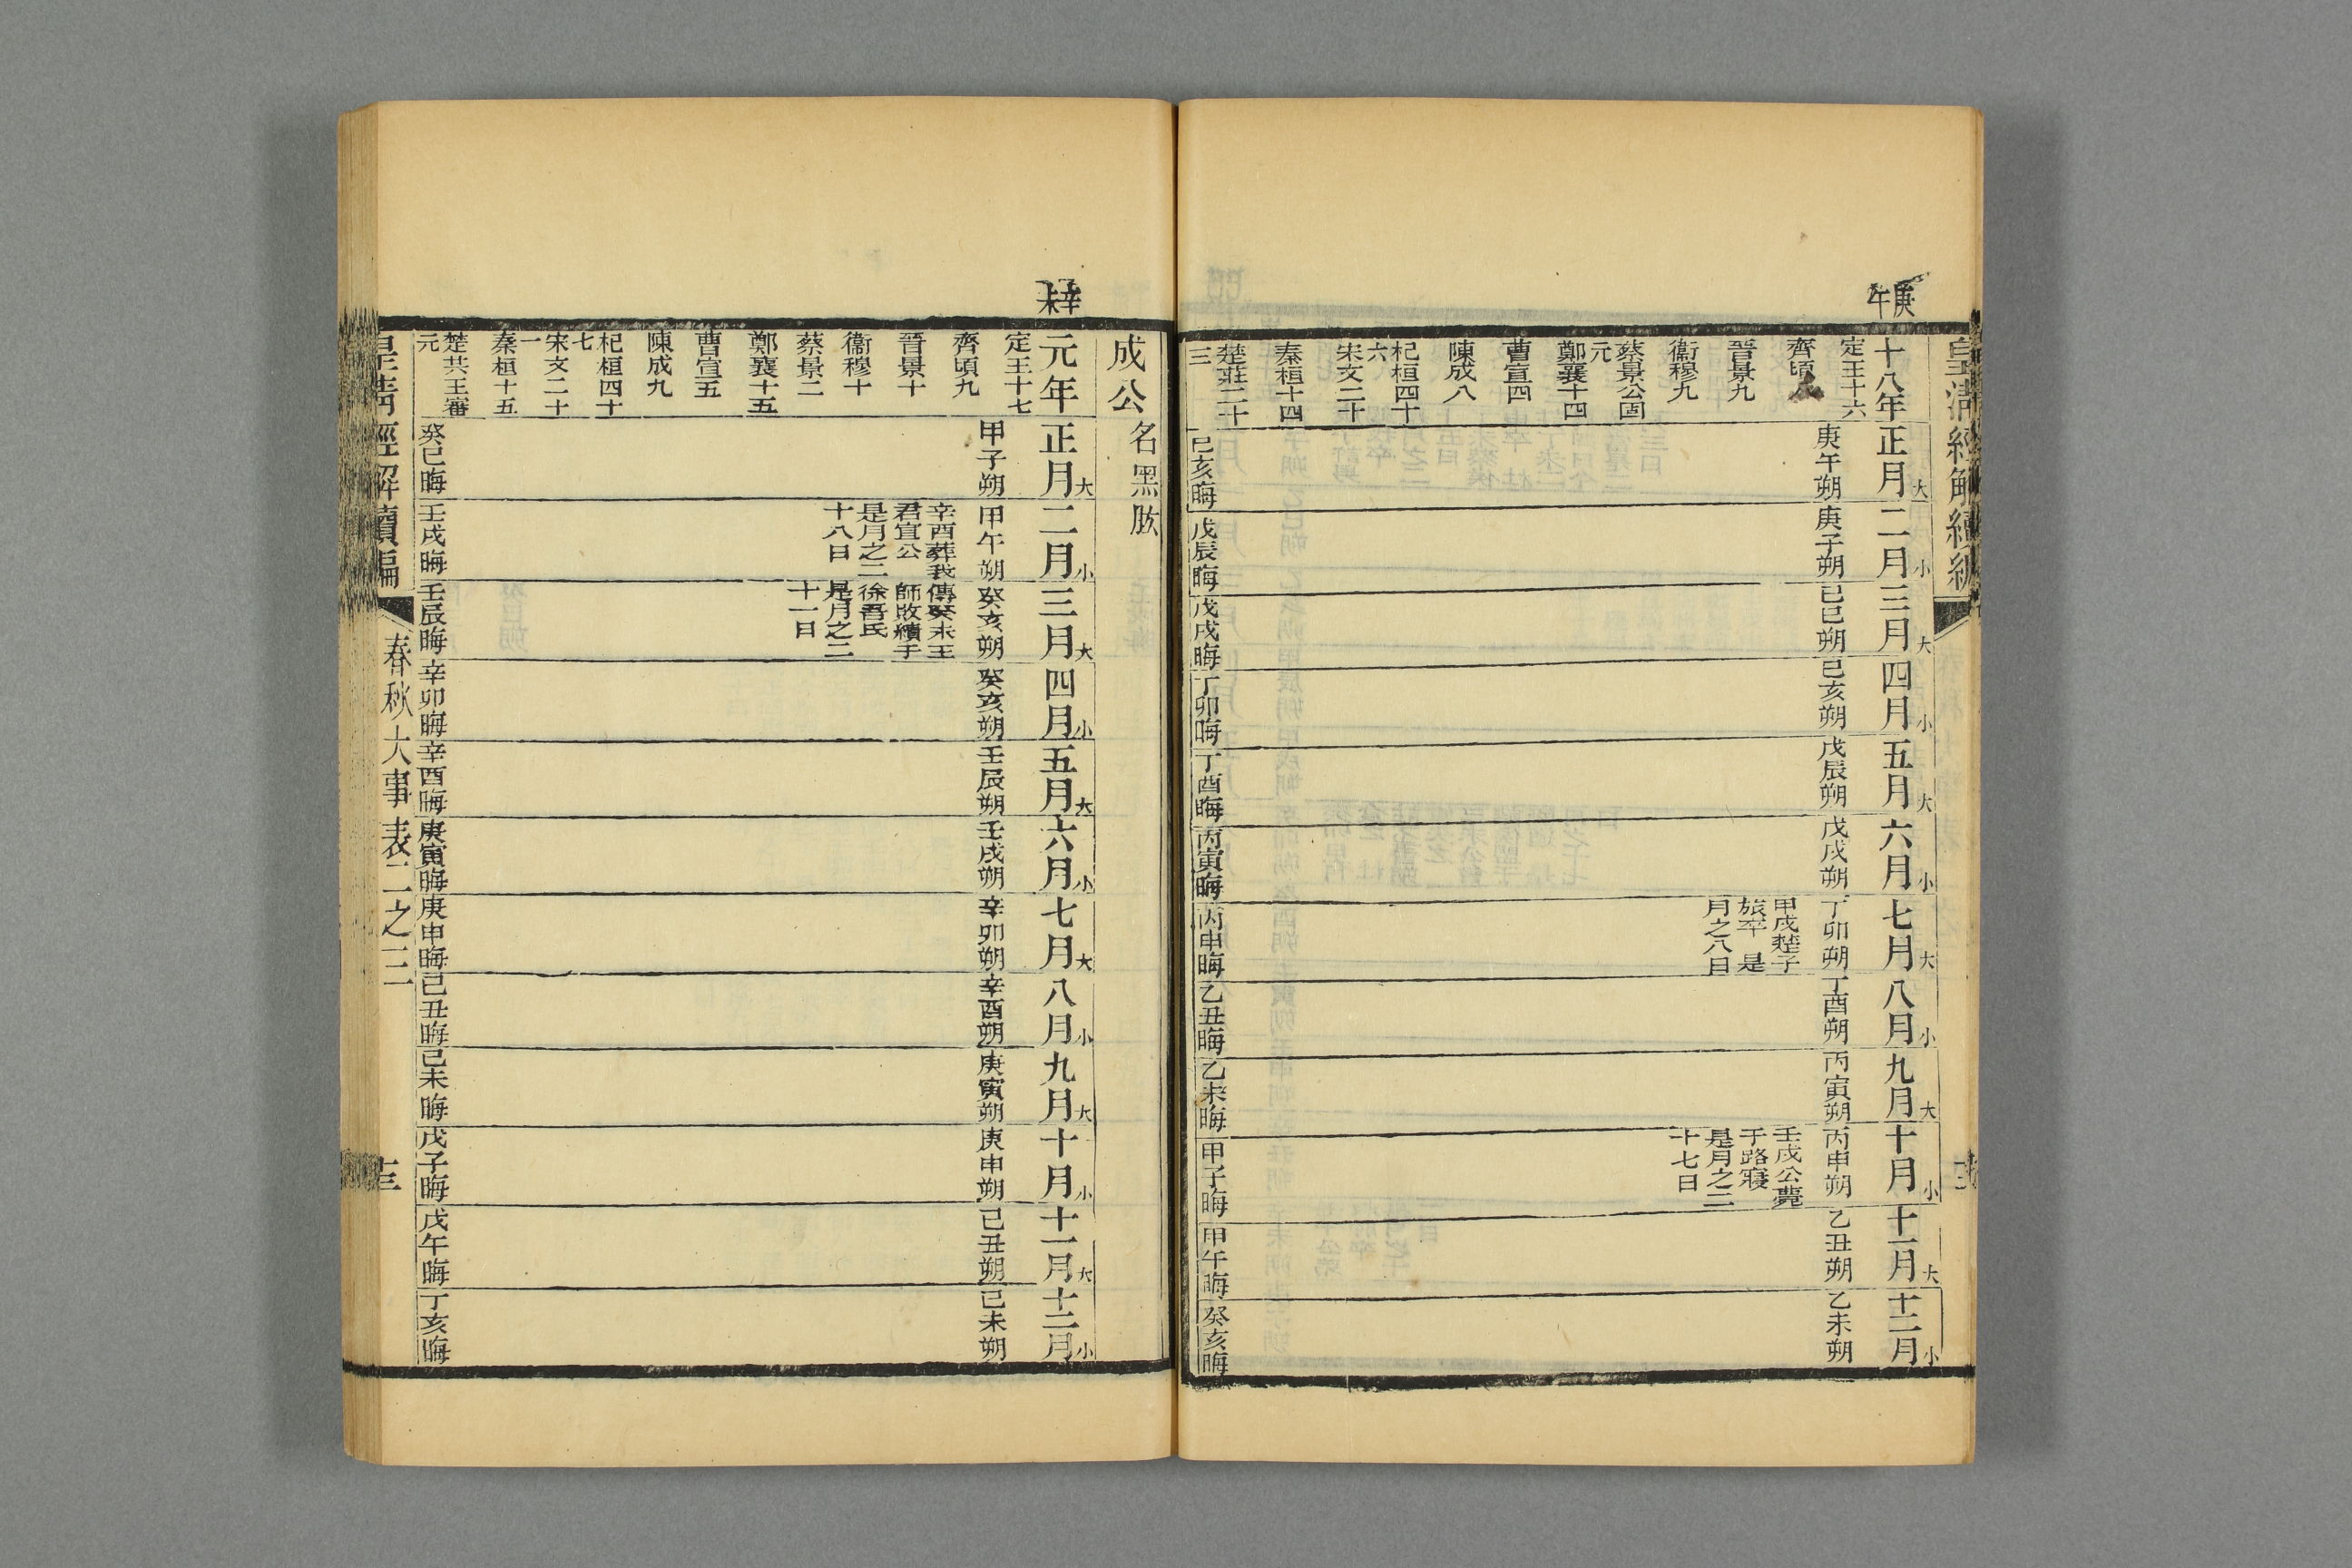 皇清經解續編
庚午
十八年
定王十六
齊頃
晉景九
衞穆九
蔡景公固
元
鄭襄十四
曹宣四
陳成八
杞桓四十
六
宋文二十
秦桓十四
楚莊二十
三
正月大
庚午朔
己亥晦
二月小
庚子朔
戊辰晦
三月大
己巳朔
戊戌晦
四月小
己亥朔
丁卯晦
五月大
戊辰朔
丁酉晦
六月小
戊戌朔
丙寅晦
七月大
丁卯朔
甲戌楚子
旅卒 是
月之八日
丙申晦
八月小
丁酉朔
乙丑晦
九月大
丙寅朔
乙未晦
十月小
丙申朔
壬戌公薨
于路寢
是月之二
十七日
甲子晦
十一月大
乙丑朔
甲午晦
十二月小
乙未朔
癸亥晦
成公 名黑肱
辛未
元年
定王十七
齊頃九
晉景十
衞穆十
蔡景二
鄭襄十五
曹宣五
陳成九
杞桓四十
七
宋文二十
一
秦桓十五
楚共王審
元
正月大
甲子朔
癸巳晦
二月小
甲午朔
辛酉葬我
君宣公
是月之二
十八日
壬戌晦
三月大
癸亥朔
傳癸未王
師敗績于
徐吾氏
是月之二
十一日
壬辰晦
四月小
癸亥朔
辛卯晦
五月大
壬辰朔
辛酉晦
六月小
壬戌朔
庚寅晦
七月大
辛卯朔
庚申晦
八月小
辛酉朔
己丑晦
九月大
庚寅朔
己未晦
十月小
庚申朔
戊子晦
十一月大
己丑朔
戊午晦
十二月小
己未朔
丁亥晦
皇清經解續編 春秋大事表二之三